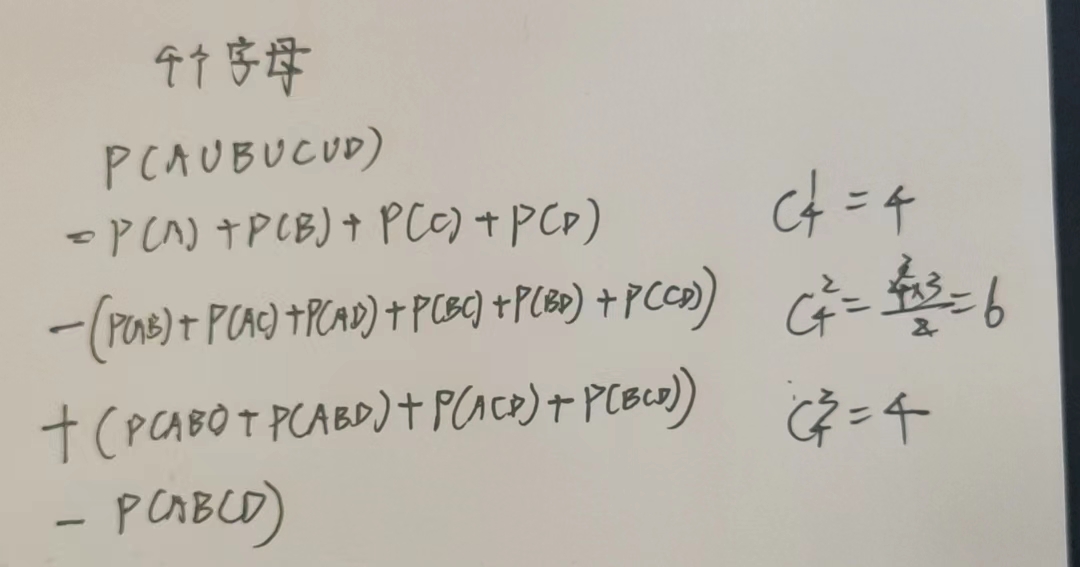 4个字母
P(A∪B∪C∪D)
=P(A)+P(B)+P(C)+P(D)
C₄¹=4
-(P(AB)+P(AC)+P(AD)+P(BC)+P(BD)+P(CD))
C₄²=4×3/2=6
+(P(ABC)+P(ABD)+P(ACD)+P(BCD))
C₄³=4
-P(ABCD)